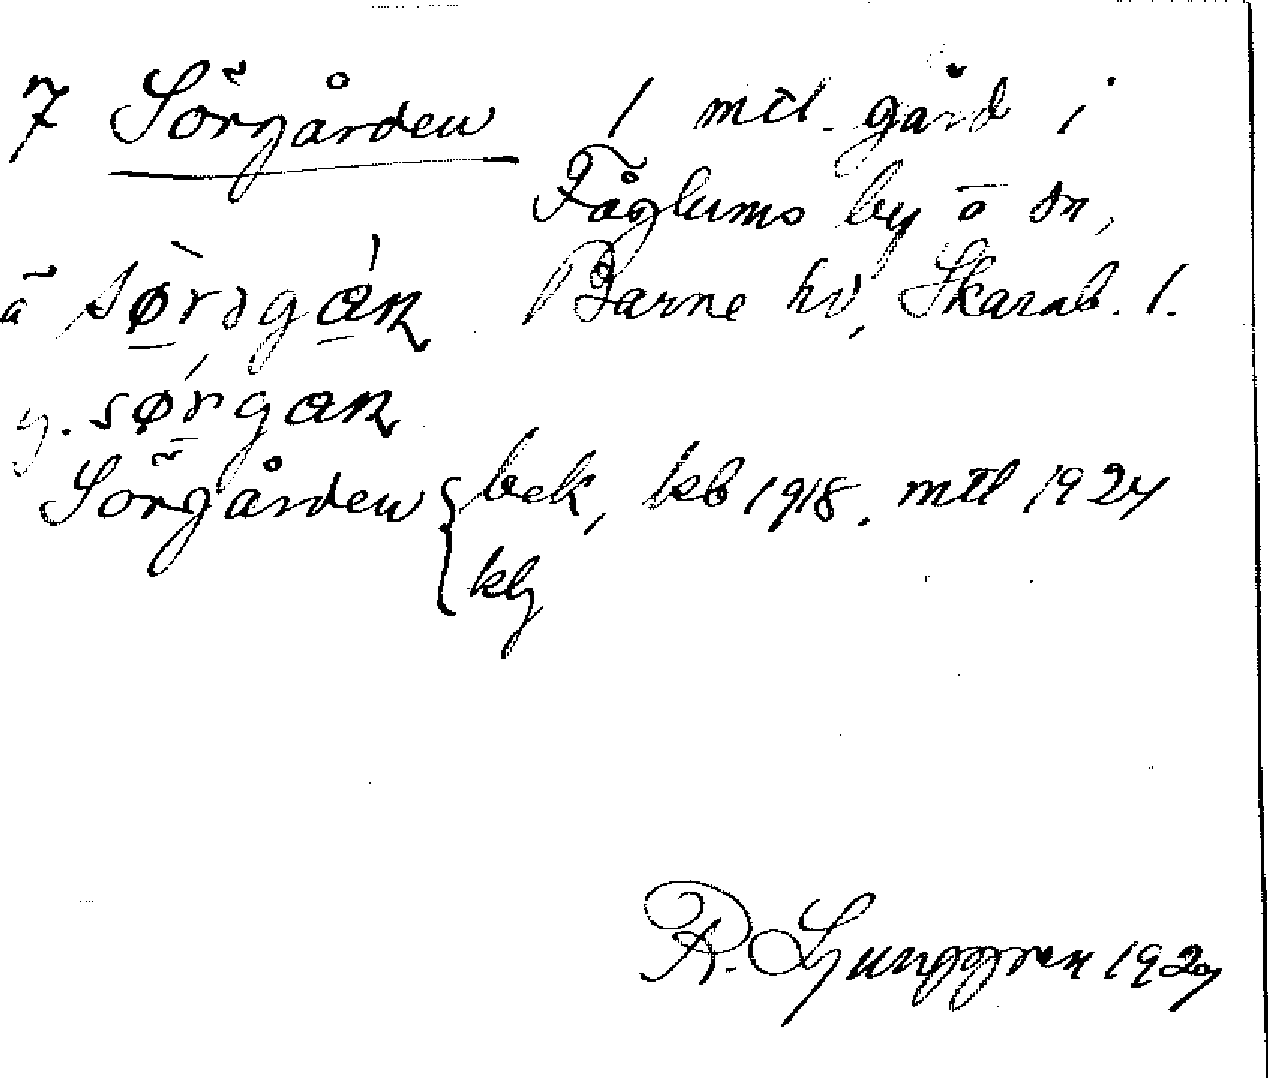 7 Sörgården 1 mtl. gård i
Fåglums by o sn,
ä sørəgan Barne hd, Skarab. l.
y. sørgan
Sörgården { bek, kb 1918. mtl 1924
klg
R. Ljunggren 1929